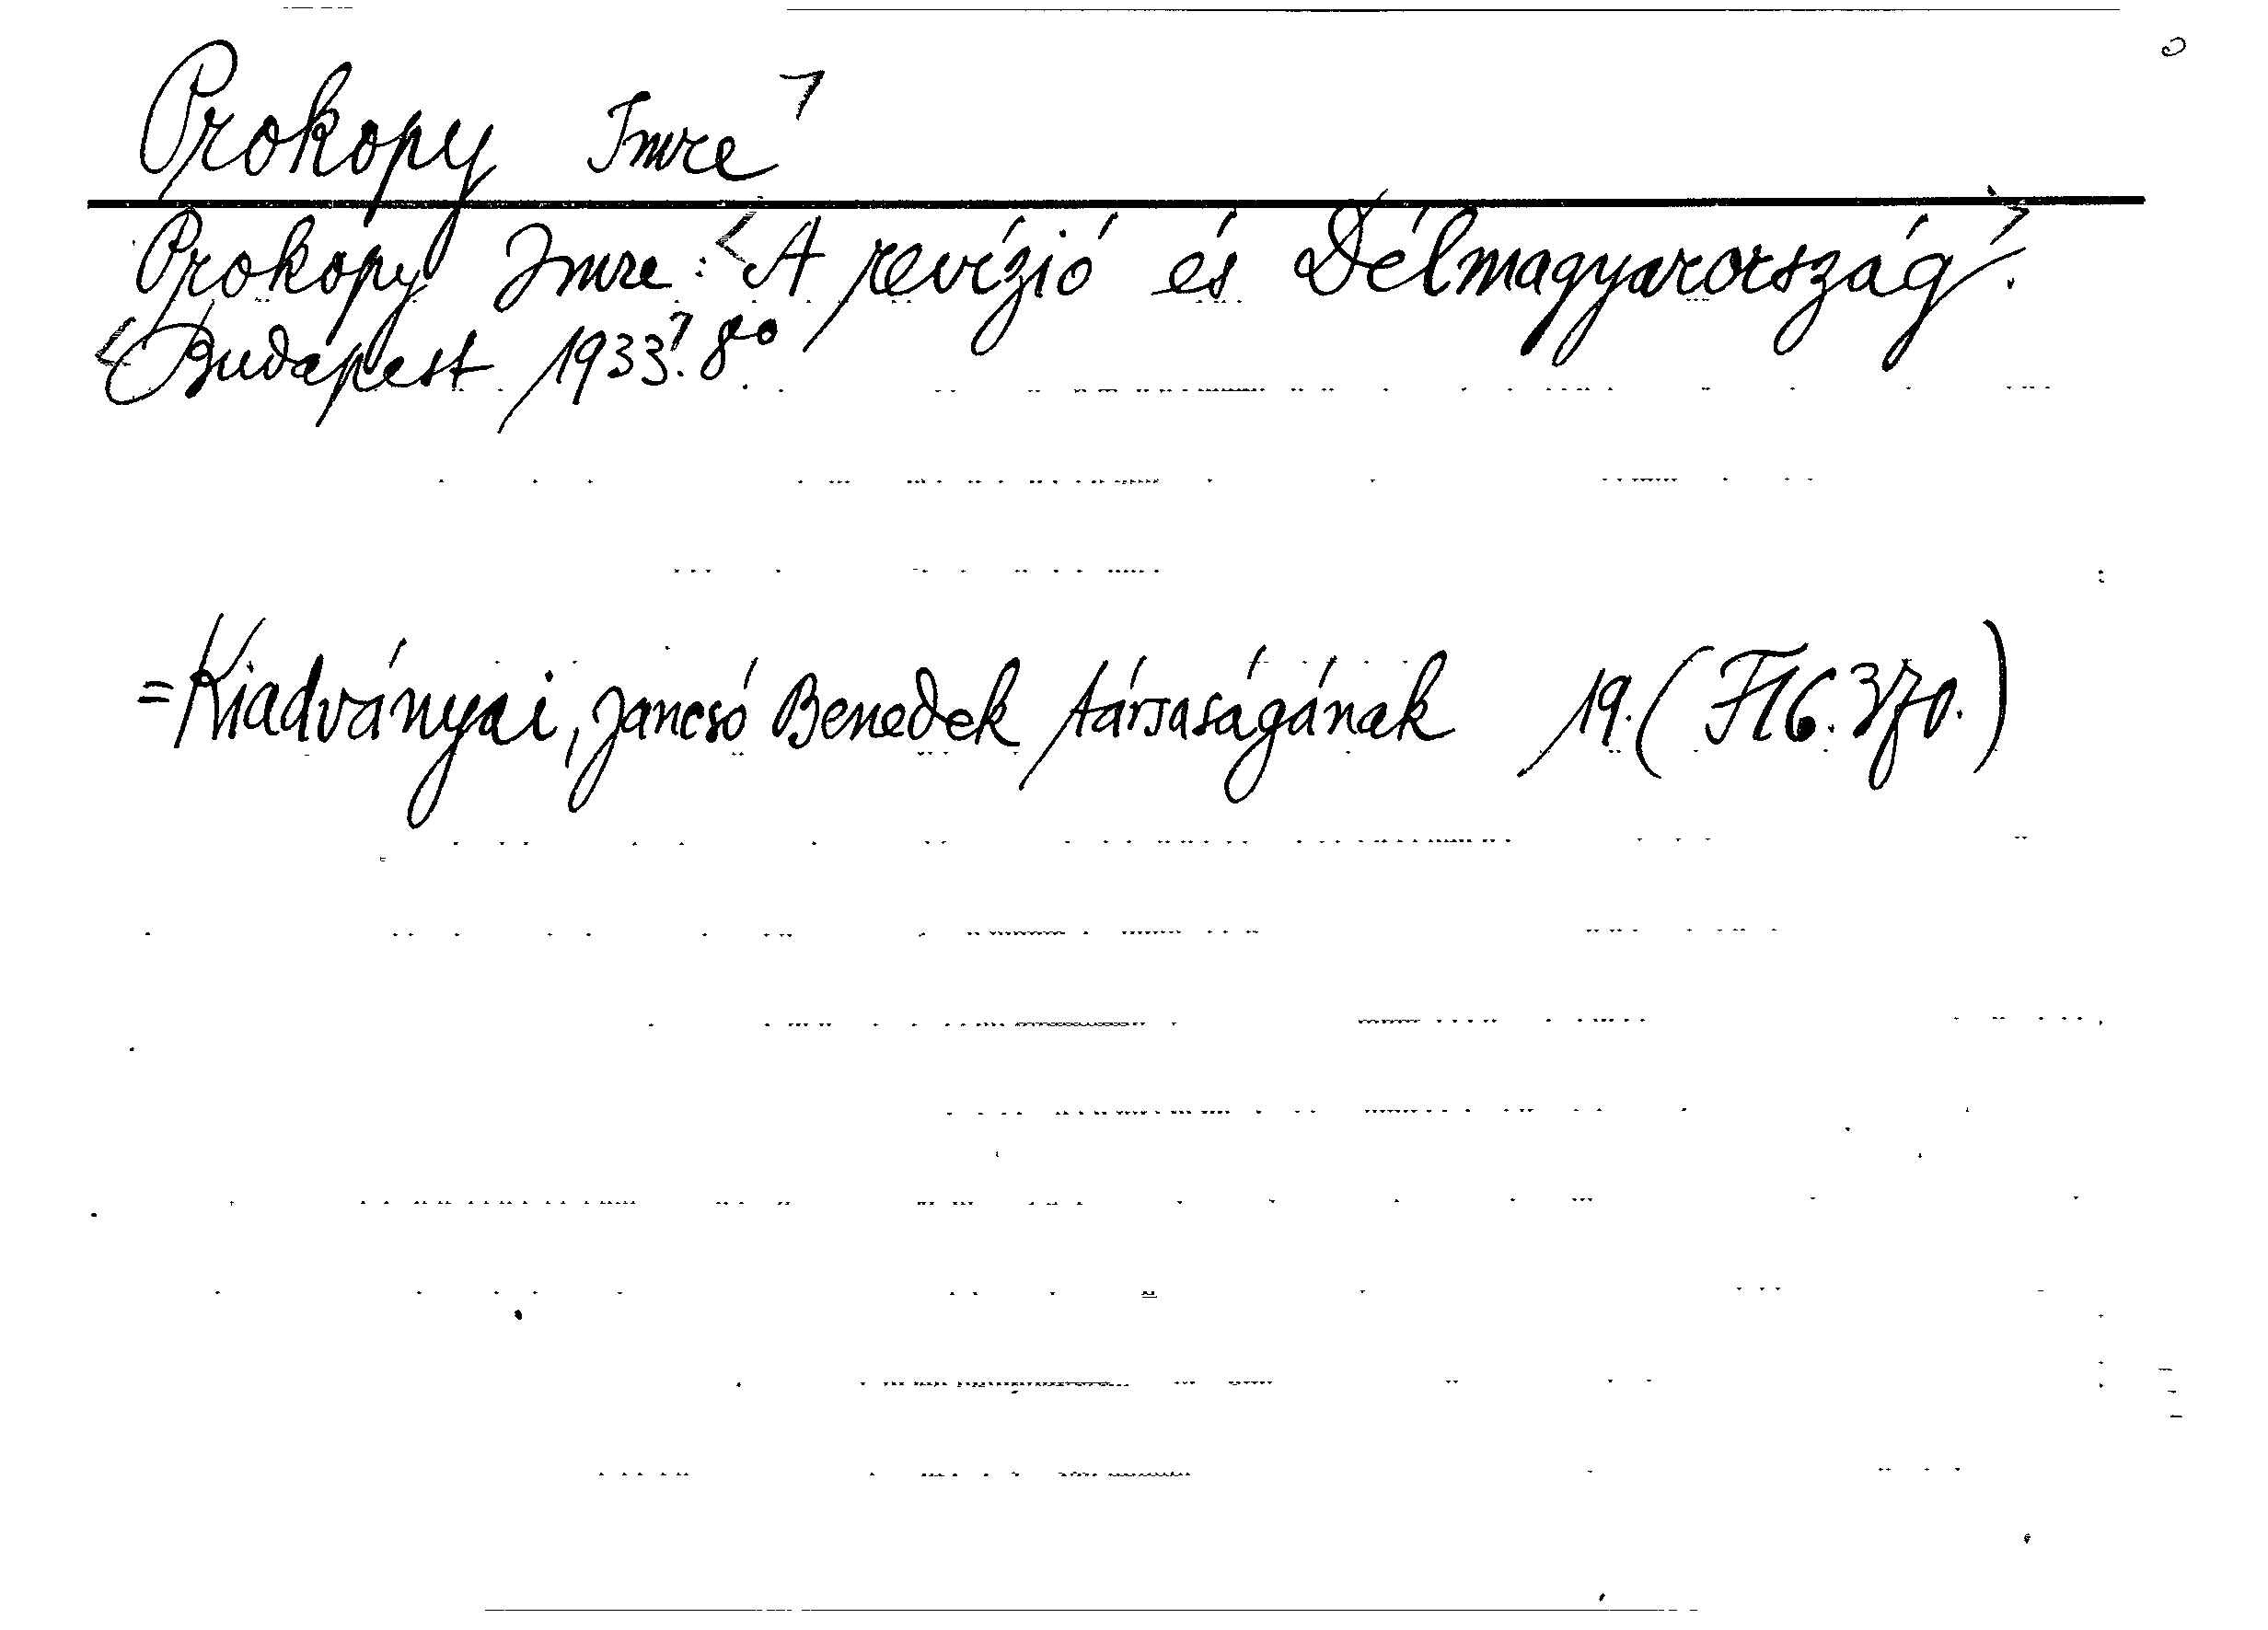 Prokopy Imre
Prokopy Imre: A revízió és Délmagyarország.
Budapest 1933. 8°
=Kiadványai, Jancsó Benedek társaságának 19. (F16.370.)